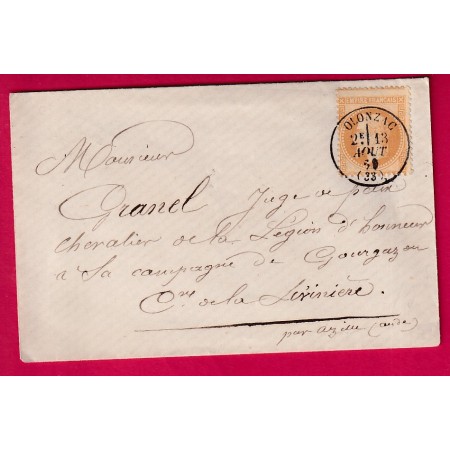 EMPIRE FRANC
OLONZAC
2E 13
AOUT
(33)
Monsieur
Granel Juge de paix
chevalier de la Légion d'honneur
à Sa campagne de Gourgazon
Cne de la Livinière.
par azille (aude)